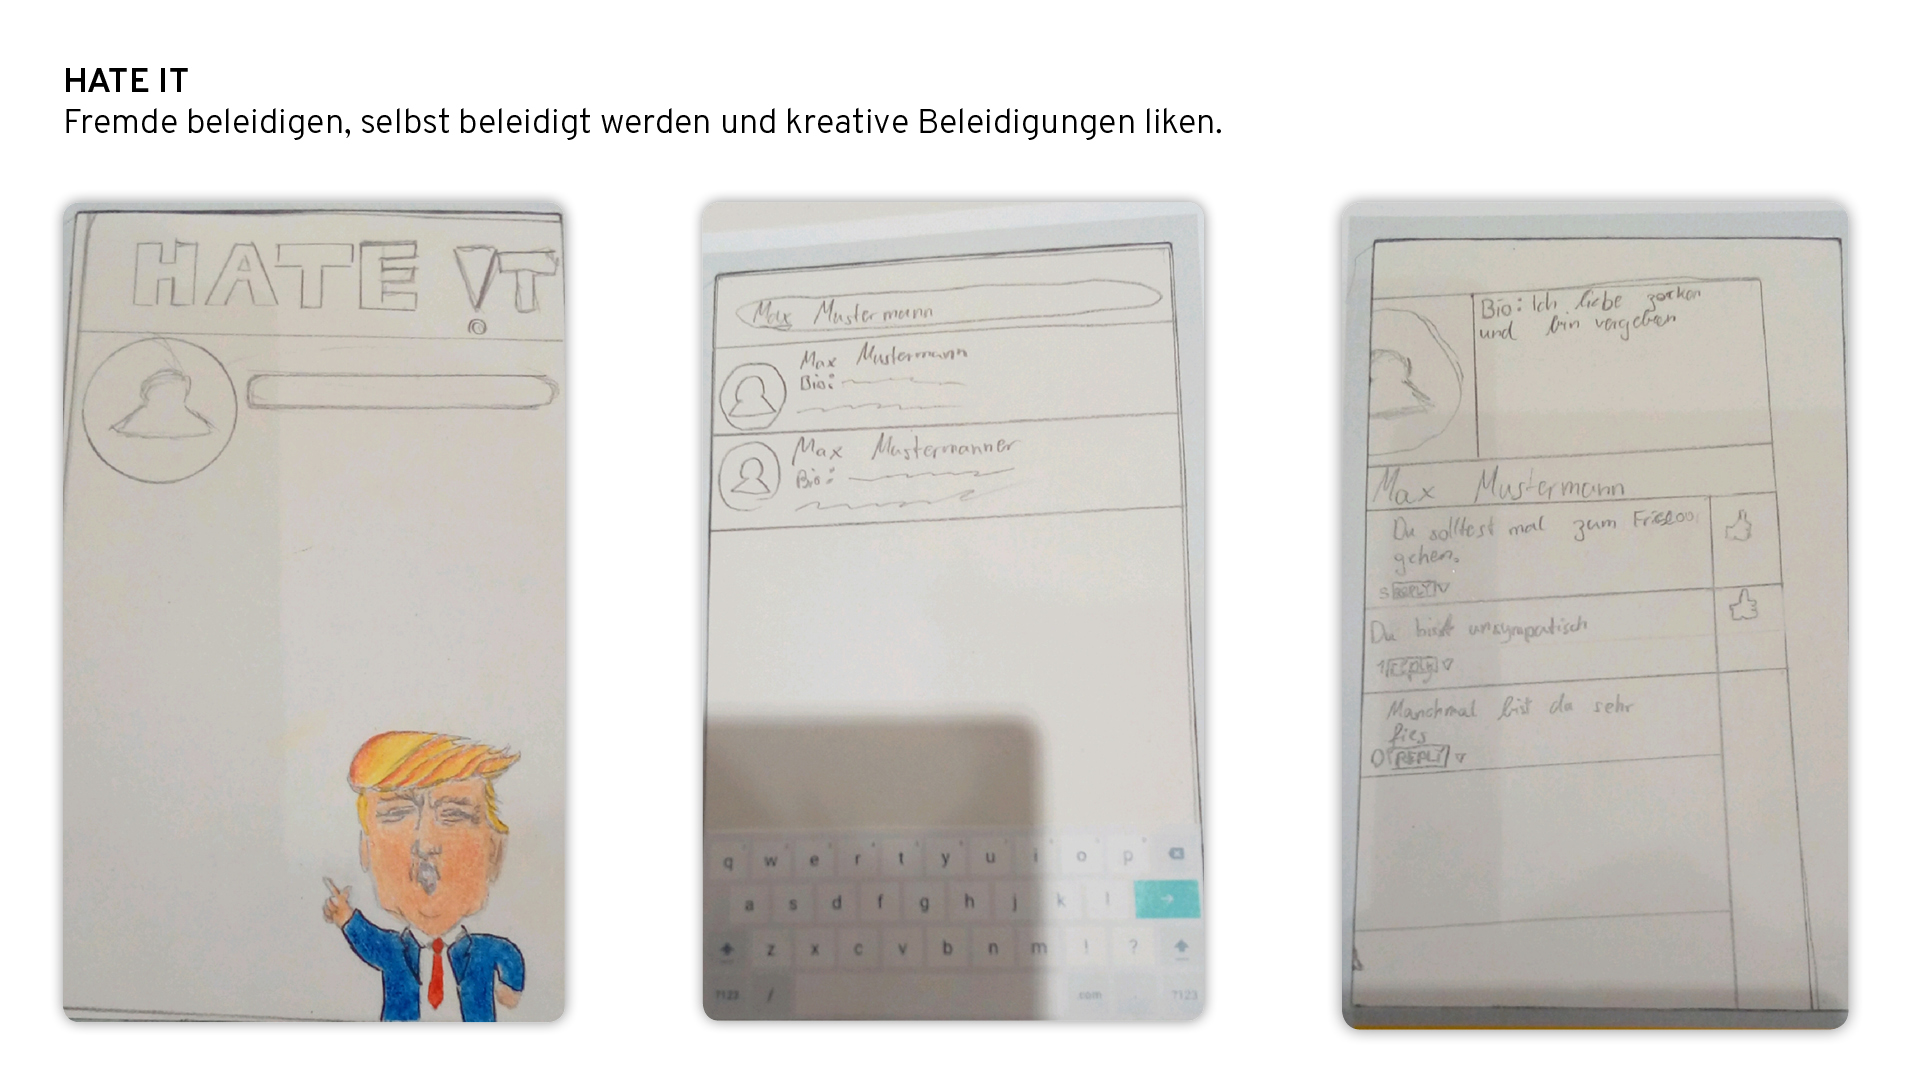 HATE IT
Fremde beleidigen, selbst beleidigt werden und kreative Beleidigungen liken.
HATE IT
Max Mustermann
Max Mustermann
Bio:
Max Mustermanner
Bio:
q w e r t y u i o p
a s d f g h j k l
z x c v b n m ! ?
?123 / .com . ?123
Bio: Ich liebe zocken
und bin vergeben
Max Mustermann
Du solltest mal zum
gehen.
5 REPLY
Du bist unsympatisch
1 reply
Manchmal bist du sehr
fies
0 REPLY